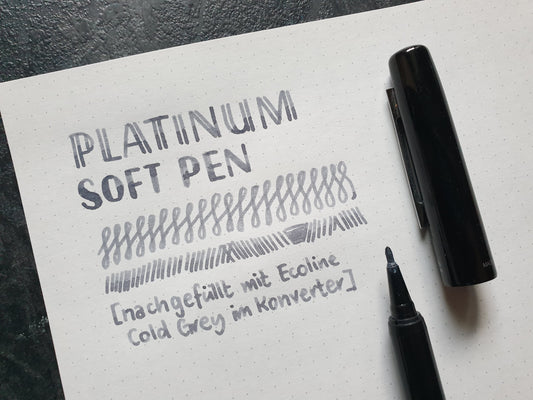 PLATINUM
SOFT PEN
[nachgefüllt mit Ecoline
Cold Grey im Konverter]